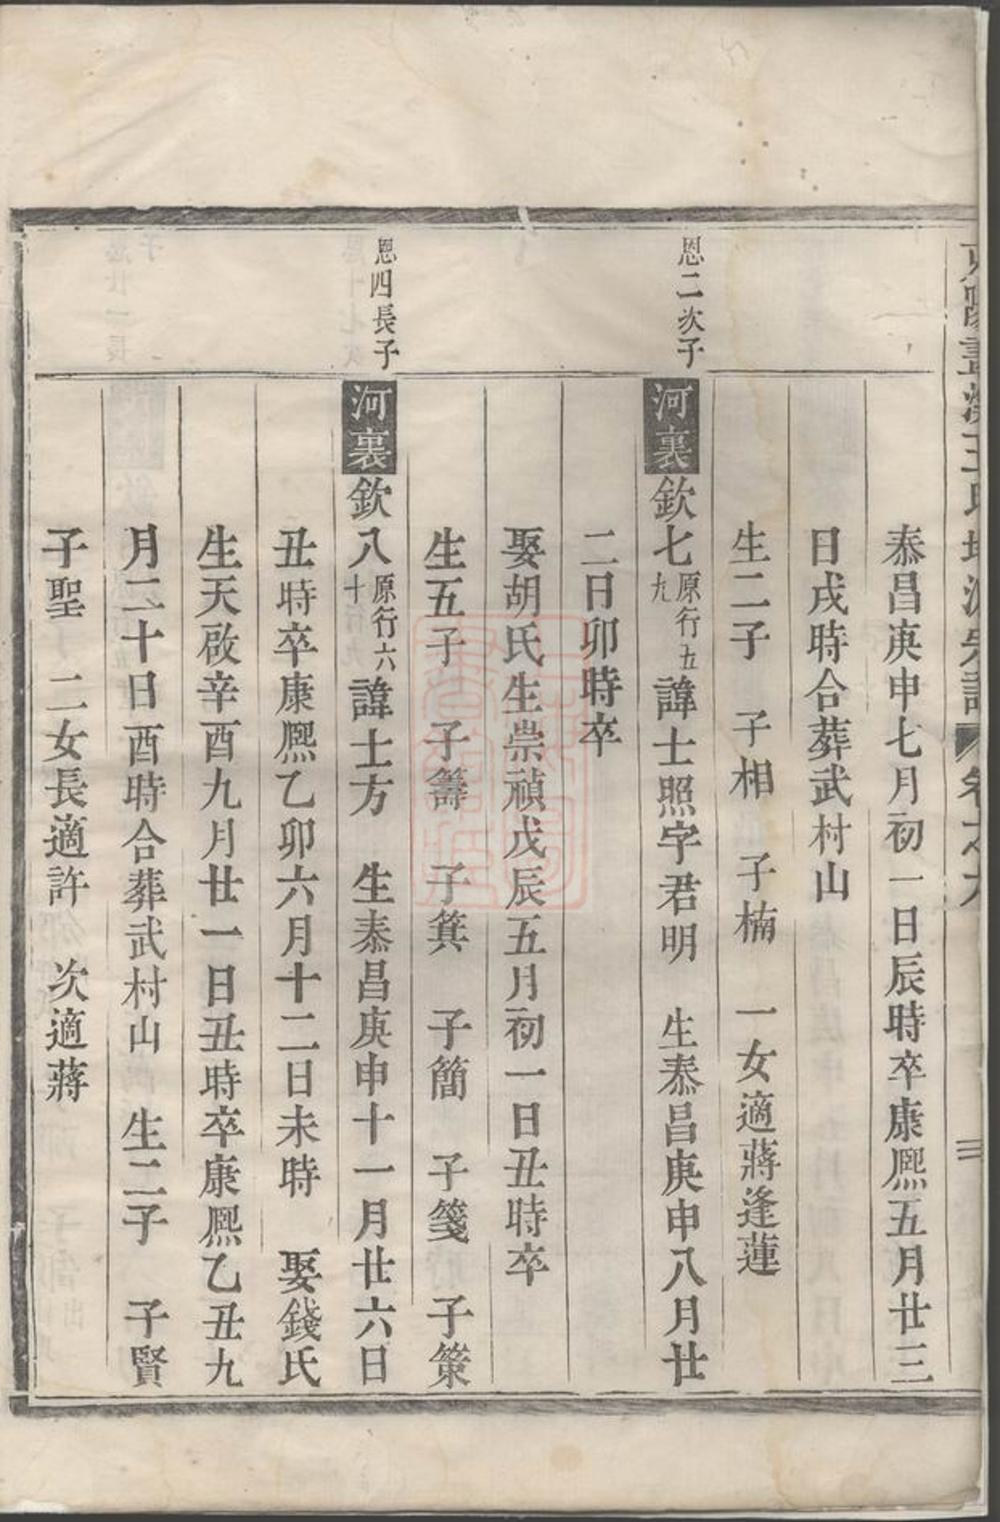 泰昌庚申七月初一日辰時卒康熈五月廿三
日戌時合葬武村山
生二子　子相　子楠　一女適蔣逢蓮
恩二次子
河裏欽七原行五九諱士照字君明　生泰昌庚申八月廿
二日卯時卒
娶胡氏生崇禎戊辰五月初一日丑時卒
生五子　子籌　子箕　子簡　子箋　子策
恩四長子
河裏欽八原行六十諱士方　生泰昌庚申十一月廿六日
丑時卒康熈乙卯六月十二日未時　娶錢氏
生天啟辛酉九月廿一日丑時卒康熈乙丑九
月二十日酉時合葬武村山　生二子　子賢
子聖　二女長適許　次適蔣